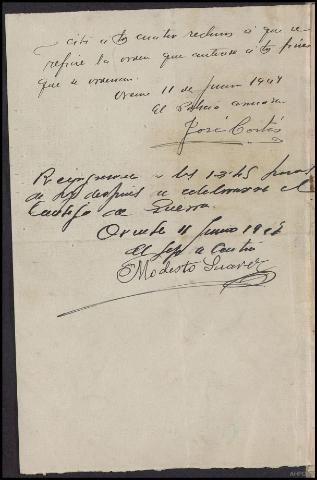 citó a los cuatro reclusos a que se
refiere la orden que antecede a los fines
que se ordenan.
11 de Junio 1948
El
José Cortés
Reingresaron a las 13'45 horas
de hoy después de celebrarse el
Consejo de Guerra
Oviedo 11 Junio 1948
El Jefe de Centro
Modesto Suarez